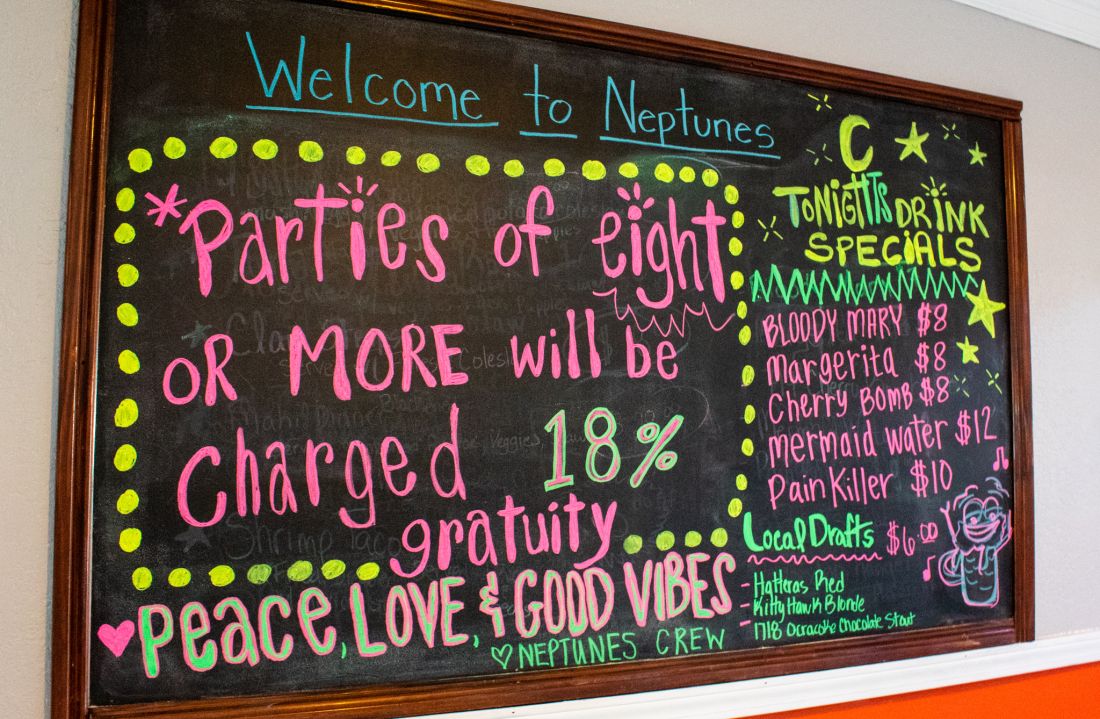 Welcome to Neptunes
*Parties of eight
OR MORE will be
Charged 18%
gratuity
Peace, LOVE, & GOOD VIBES
♡ NEPTUNES CREW
TONIGHTS DRINK
SPECIALS
BLOODY MARY $8
Margerita $8
Cherry BOMB $8
mermaid water $12
Pain Killer $10
Local Drafts $6.00
- Hatteras Red
- Kitty Hawk Blonde
- 1718 Ocracoke Chocolate Stout